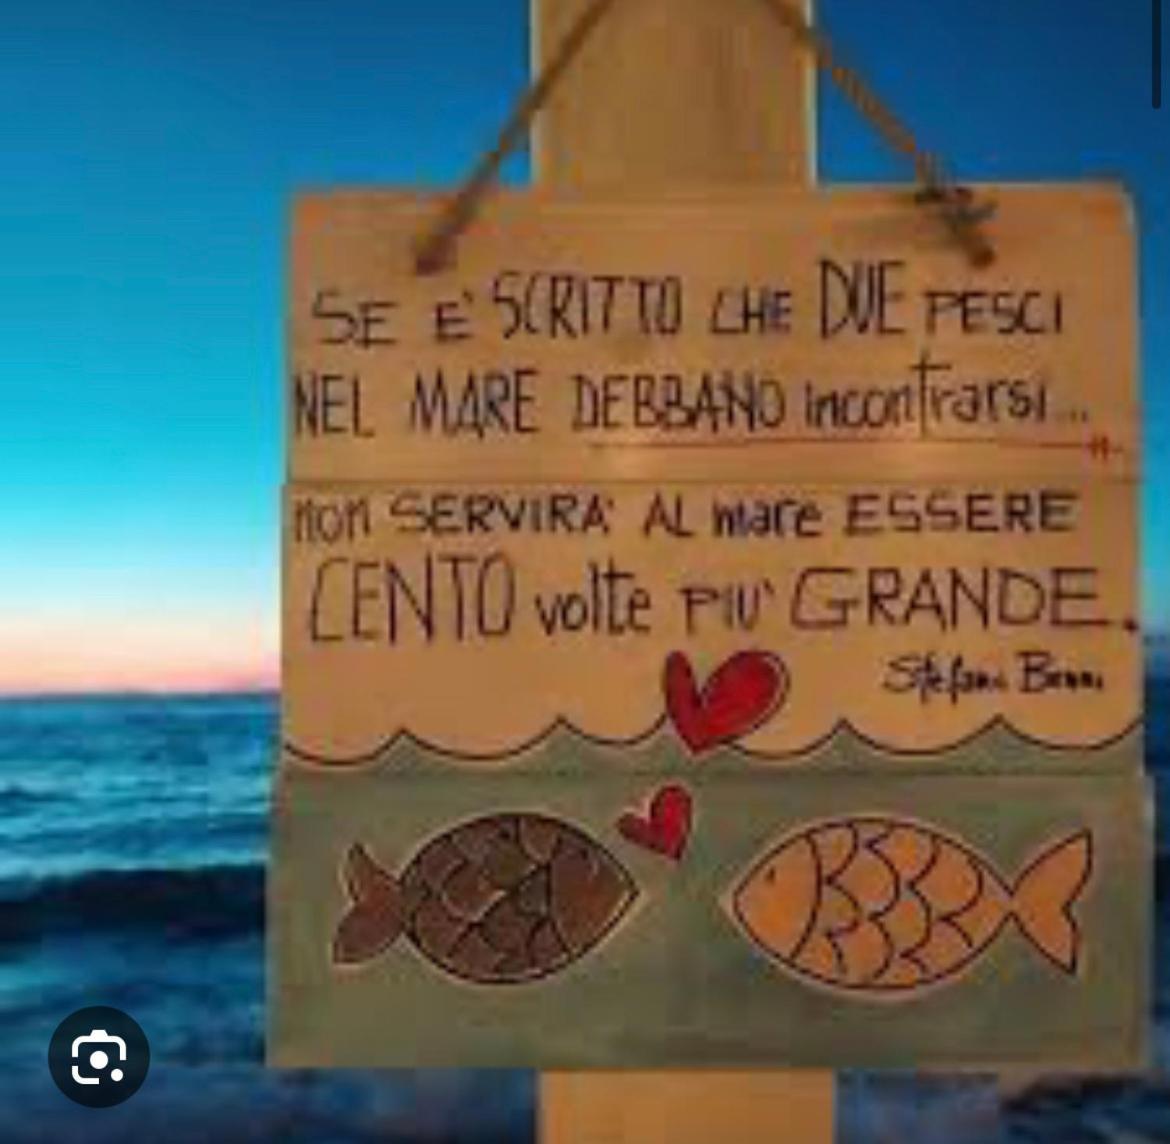 SE E' SCRITTO CHE DUE PESCI
NEL MARE DEBBANO incontrarsi...
non SERVIRA' AL mare ESSERE
CENTO volte PIU' GRANDE.
Stefano Benni